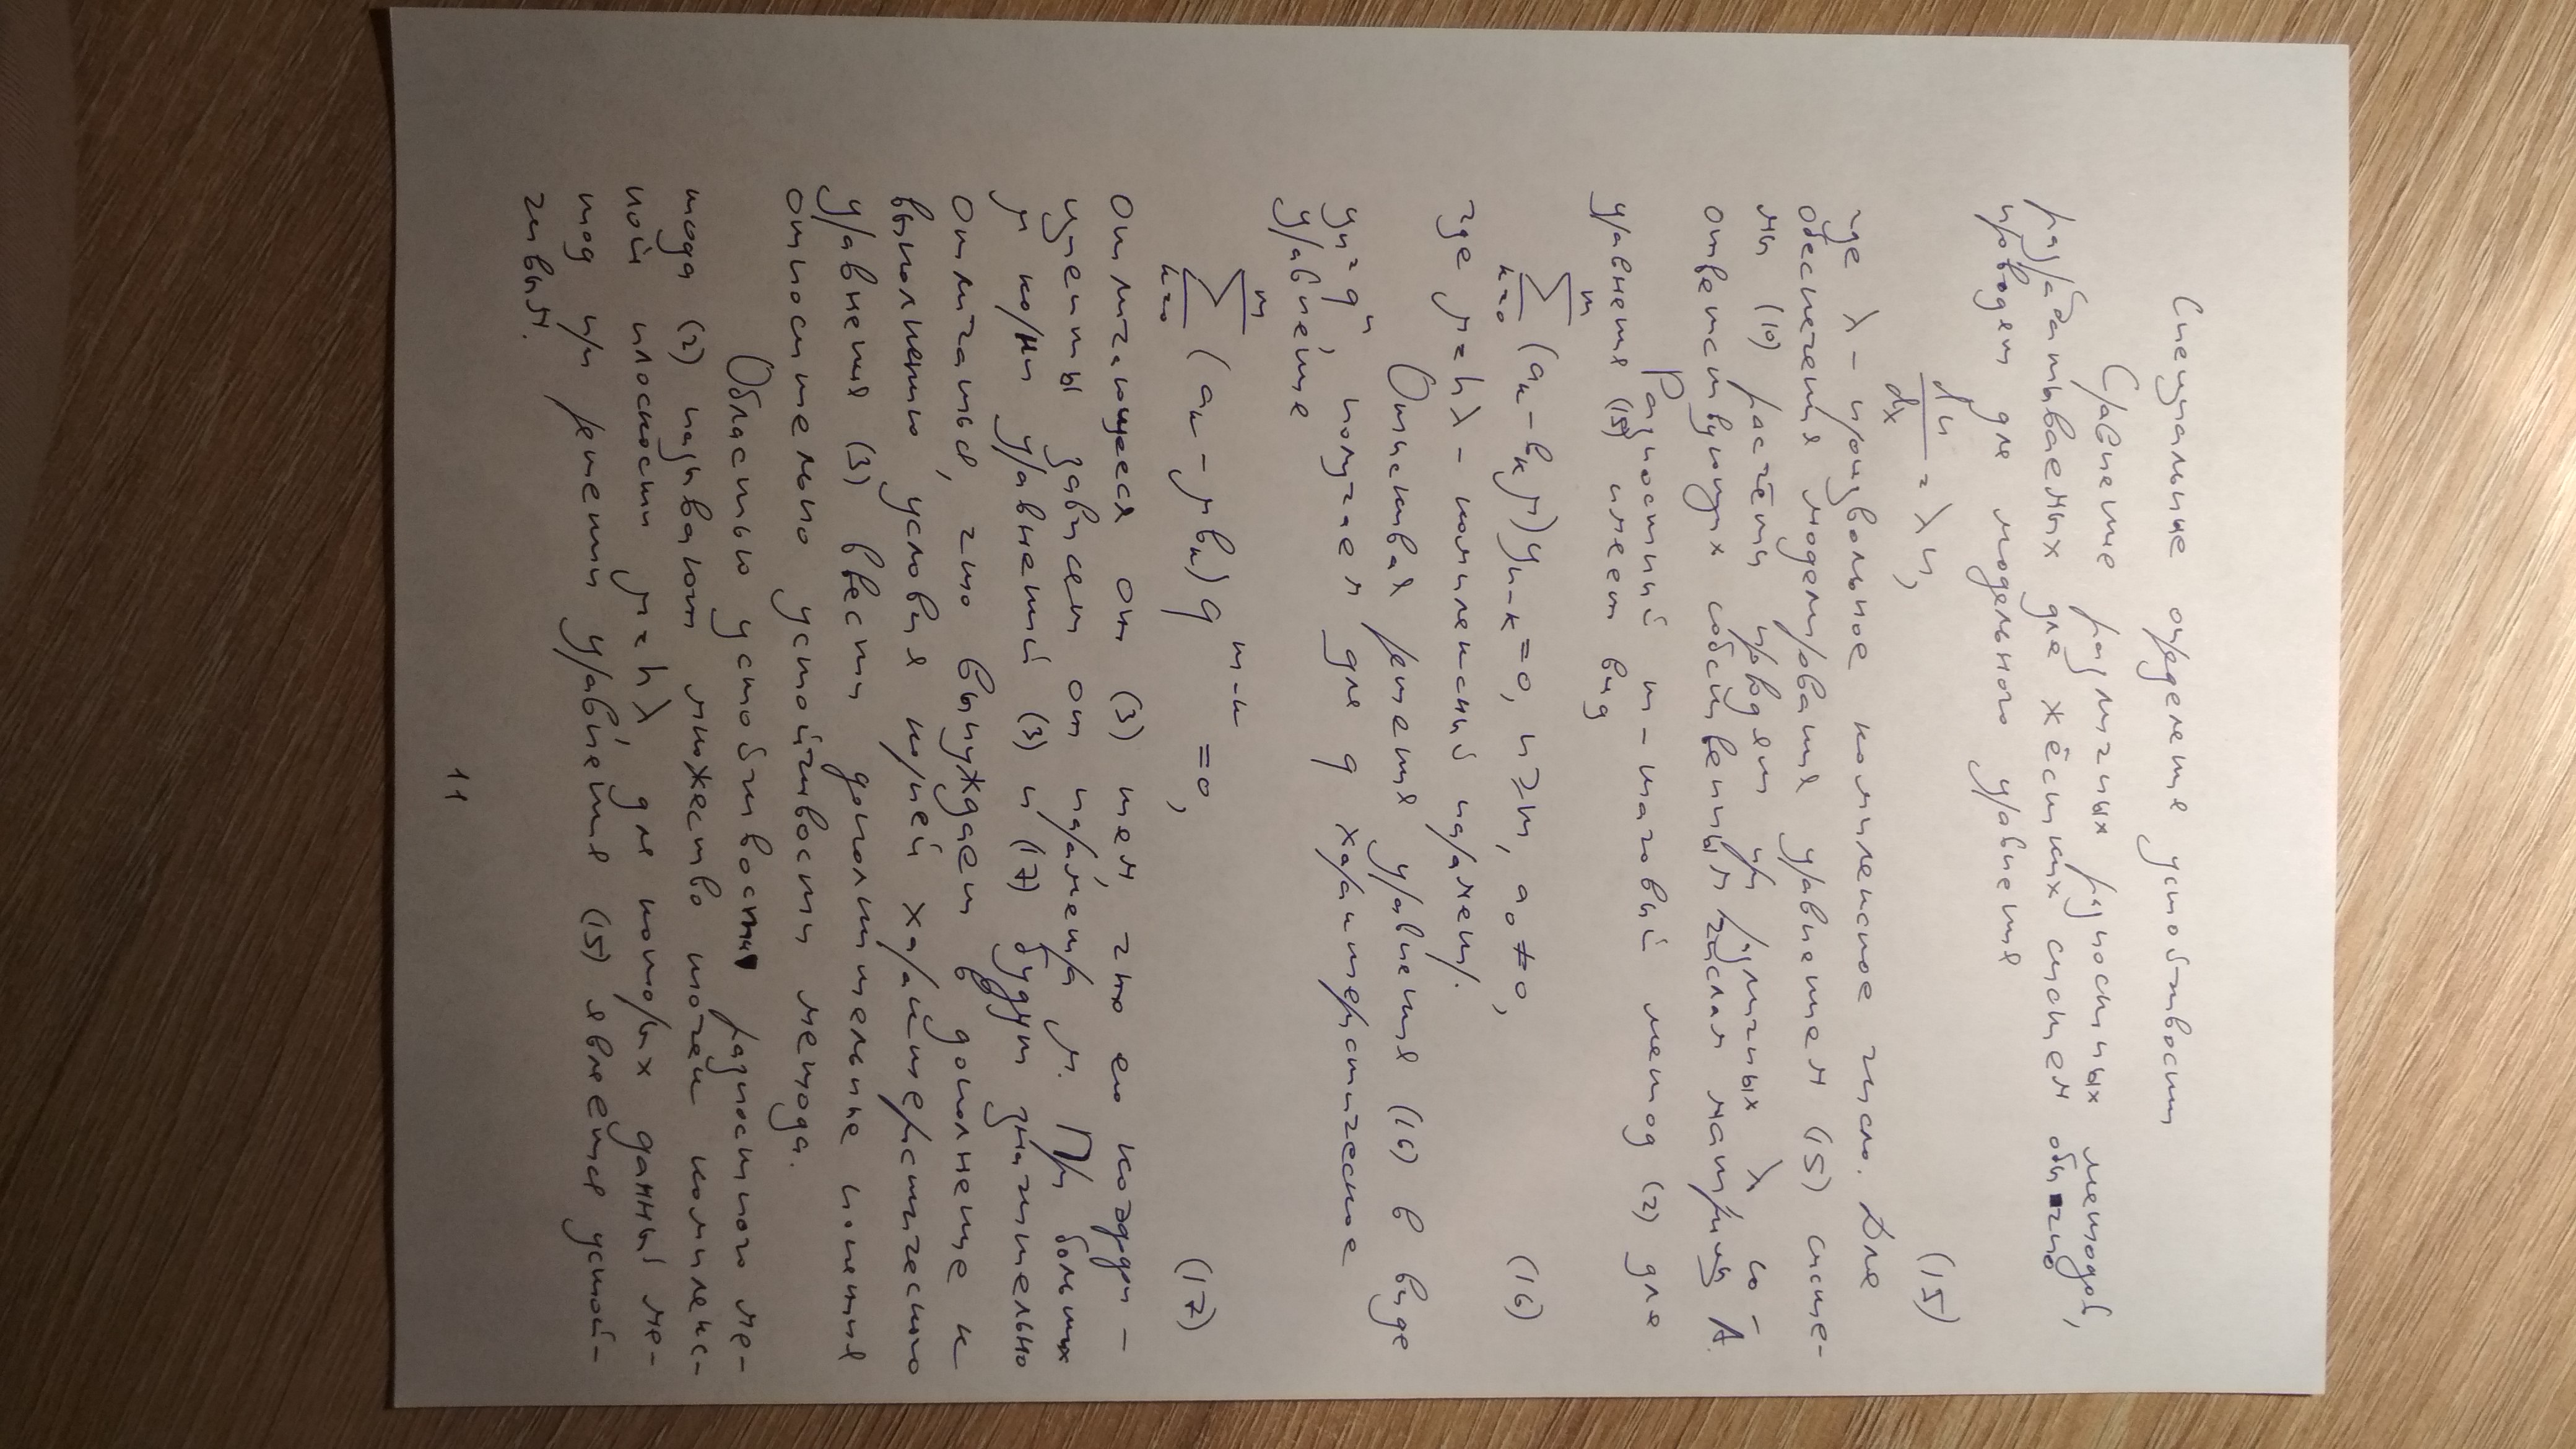 Специальные определения устойчивости
Сравнение различных разностных методов,
разрабатываемых для жёстких систем обычно
проводят для модельного уравнения
du/dx = λu, (15)
где λ – произвольное комплексное число. Для
обеспечения моделирования уравнением (15) систе-
мы (10) расчёты проводят при различных λ, со-
ответствующих собственным числам матрицы A.
Разностный m-шаговый метод (2) для
уравнения (15) имеет вид
∑_{k=0}^{m} (a_k – b_k μ) y_{n-k} = 0, n ≥ m, a_0 ≠ 0, (16)
где μ = hλ – комплексный параметр.
Отыскивая решения уравнения (16) в виде
y_n = q^n, получаем для q характеристическое
уравнение
∑_{k=0}^{m} (a_k – μ b_k) q^{m-k} = 0, (17)
отличающееся от (3) тем, что его коэффи-
циенты зависят от параметра μ. При больших
μ корни уравнений (3) и (17) будут значительно
отличаться, что вынуждает в дополнение к
выполнению условия корней характеристического
уравнения (3) ввести дополнительные понятия
относительно устойчивости метода.
Областью устойчивости разностного ме-
тода (2) называют множество точек комплекс-
ной плоскости μ = hλ, для которых данный ме-
тод при решении уравнения (15) является устой-
чивым.
11